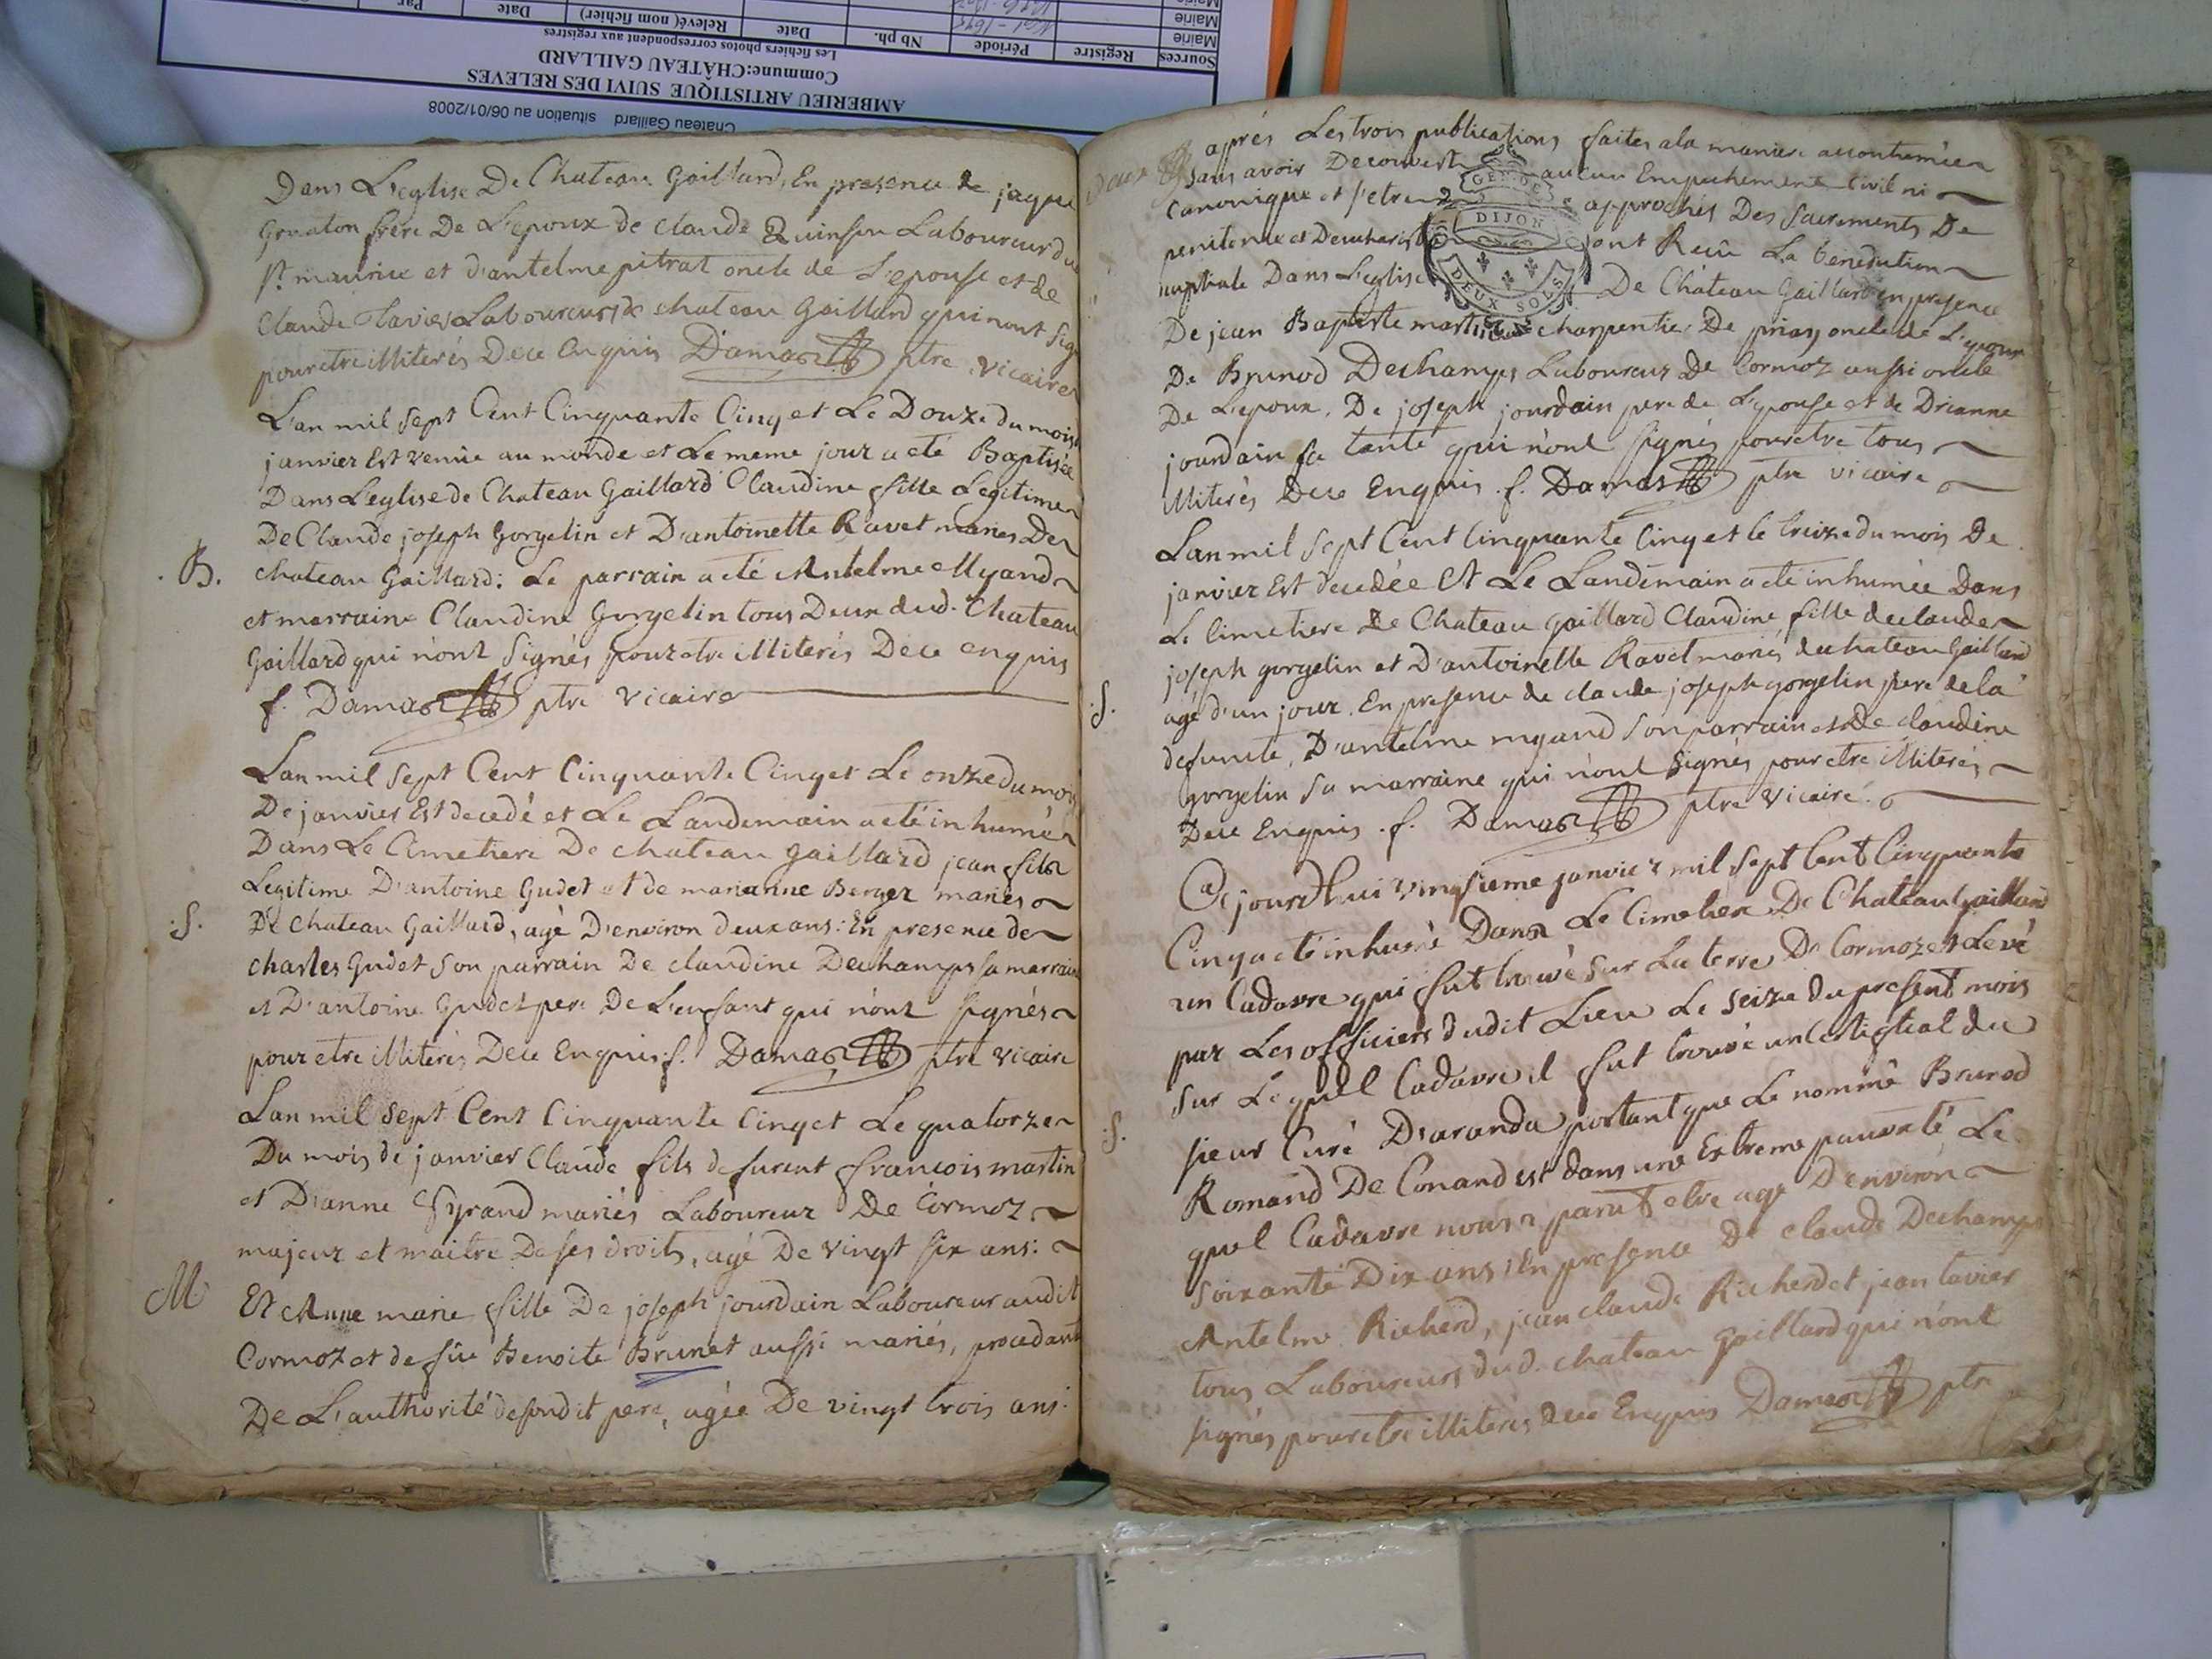 Chateau Gaillard situation au 06/01/2008
AMBERIEU ARTISTIQUE SUIVI DES RELEVES
Commune:CHÂTEAU GAILLARD
Les fichiers photos correspondent aux registres
Sources Registre Période Nb ph. Date Relevé( nom fichier) Date Par
Mairie
Mairie
Mairie
Dans L'eglise De Chateau Gaillard, En presence de jaque
frere De L'epoux de claude Quinson Laboureur du
st maurice et d'antelme pitrat oncle de L'epouse et de
Claude Tavier Laboureurs de chateau Gaillard qui nont sig
pour etre illiterés De ce Enquis Damas ptre vicaire
L'an mil sept Cent Cinquante Cinq et Le Douze du mois
janvier Est venüe au monde et Le meme jour a eté Baptisée
Dans L'eglise de Chateau Gaillard Claudine fille Legitime
De Claude joseph Gorgelin et D'antoinette Ravet mariés De
B. chateau Gaillard: Le parrain a eté Antelme Myand
et marraine Claudine Gorgelin tous Deux dud. Chateau
Gaillard qui n'ont signés pour etre illiterés De ce enquis
f. Damas ptre vicaire
Lan mil sept Cent Cinquante Cinq et Le onze du mois
De janvier Est decedé et Le Landemain a eté inhumé
Dans Le Cimetiere De chateau Gaillard jean fils
Legitime D'antoine Gudet et de marianne Berger mariés
.S. De chateau Gaillard, agé D'environ deux ans: En presence de
charles Gudet son parrain De claudine Dechamps sa marraine
et D'antoine Gudet pere De L'enfant qui n'ont signés
pour etre illiterés De ce Enquis f. Damas ptre vicaire
Lan mil sept Cent Cinquante Cinq et Le quatorze
Du mois de janvier Claude fils de furent francois martin
et D'anne Gyrand mariés Laboureur De Cormoz
majeur et maitre De ses droits, agé De vingt six ans:
M Et Anne marie fille De joseph jourdain Laboureur audit
Cormoz et de füe Benoite Brunet aussi mariés, procedant
De L'authorité desondit pere, agée De vingt trois ans.
aprés Les trois publications faites a la maniere accoutumée
sans avoir Decouvert aucun Empechement Civil ni
canonique et s'etre approchés Des Sacrements De
penitence et Deucharist ont Reçu La benediction
nuptiale Dans L'eglise De Château Gaillard en presence
GEN. DE
DIJON
DEUX SOLS
De jean Baptiste martin charpentier De priay oncle de L'epoux
De Brunod Dechamps Laboureur De Cormoz aussi oncle
De L'epoux, De joseph jourdain pere de L'epouse et de Drianne
jourdain sa tante qui n'ont signés pour etre tous
illiterés De ce Enquis f. Damas ptre vicaire
Lan mil sept Cent Cinquante Cinq et le treize du mois De
janvier Est decedée Et Le Landemain a eté inhumée Dans
Le Cimetiere De Chateau Gaillard Claudine fille de claude
joseph gorgelin et D'antoinette Ravet mariés de chateau Gaillard
.S. agé d'un jour. En presence de claude joseph gorgelin pere de la
defunte, D'antelme myand son parrain et De claudine
gorgelin sa marraine qui n'ont signés pour etre illiterés
De ce Enquis .f. Damas ptre vicaire.
Ce jourdhui janvier mil sept Cent Cinquante
Cinq a eté inhumé Dans Le Cimetiere De Chateau Gaillard
un Cadavre qui fut trouvé sur La terre De Cormoz et Levé
par Les officiers dudit Lieu Le seize du present mois
sur Lequel Cadavre il fut trouvé un du
.S. sieur Curé Daranda portant que Le nommé Brunod
Romand De Conand est dans une Extreme pauvreté Le
quel Cadavre nous a parut etre agé D'environ
soixante Dix ans: En presence De claude Dechamps
Antelme Richerd, jean claude Richerd et jean tavier
tous Laboureurs dud. chateau Gaillard qui n'ont
signés pour etre illiterés De ce Enquis Damas ptre